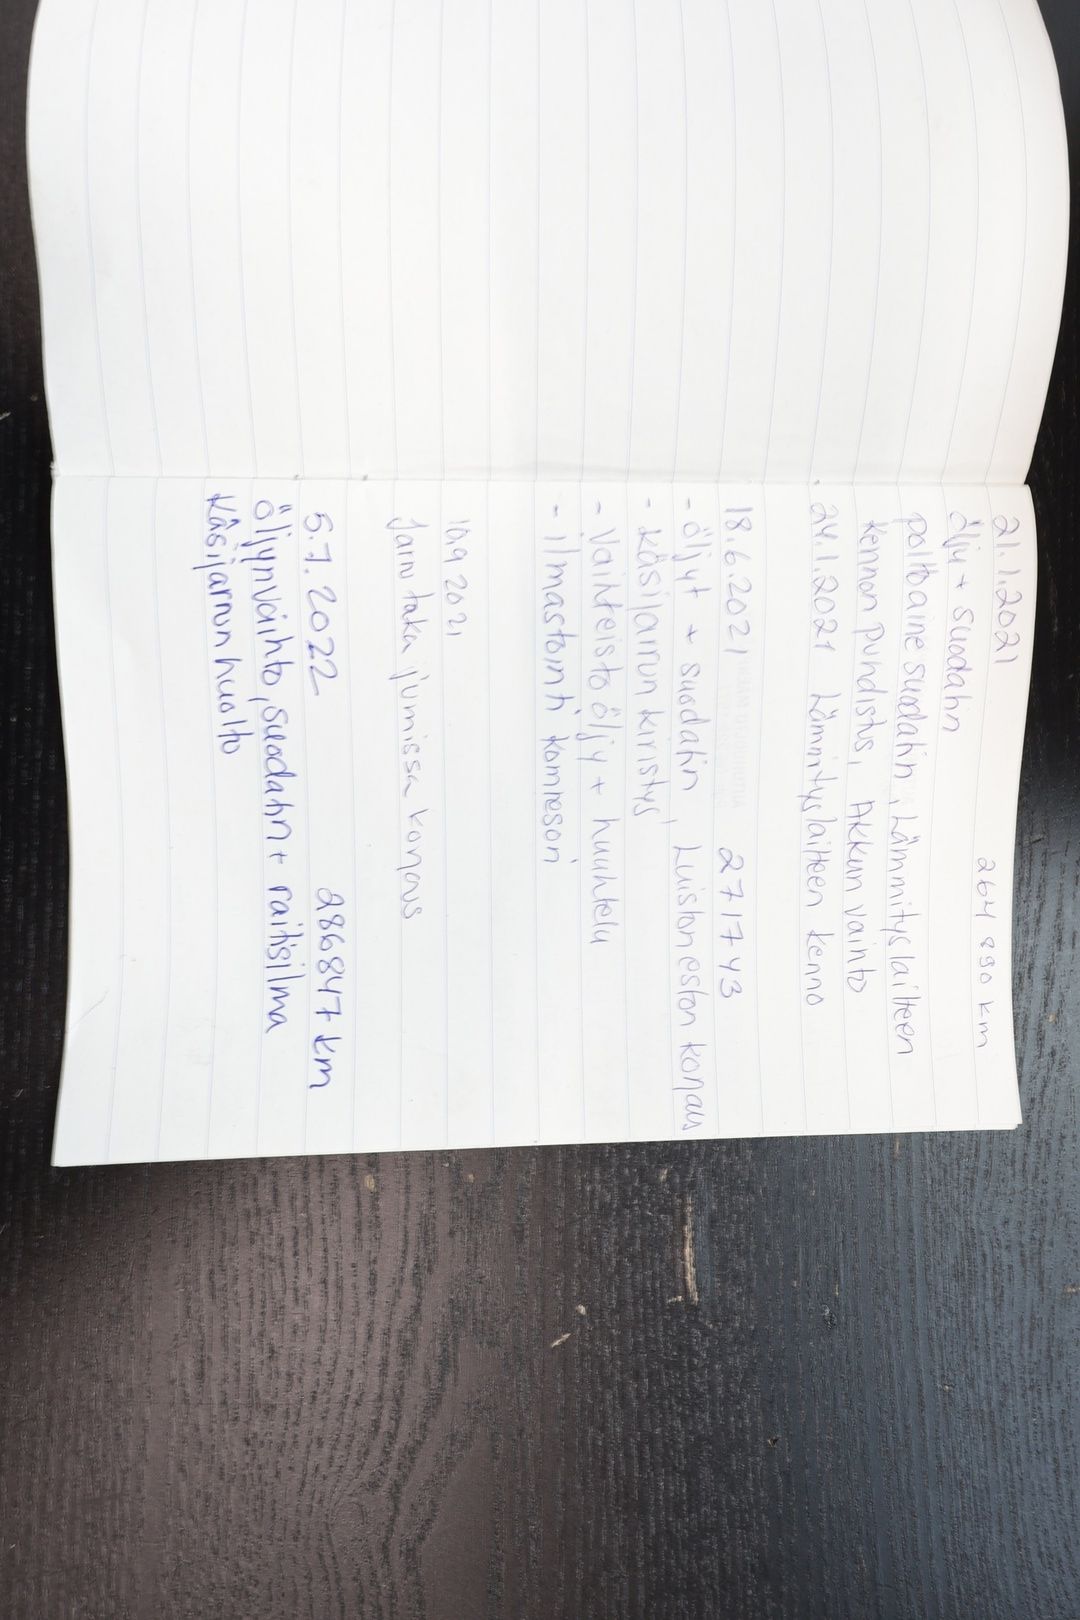 21.1.2021 264 890 km
öljy + suodatin
polttoainesuodatin, Lämmityslaitteen
kennon puhdistus, Akkun vaihto
24.1.2021 Lämmityslaitteen kenno
18.6.2021 271743
- öljyt + suodatin, Luiston eston korjaus
- käsijarrun kiristys
- Vaihteisto öljy + huuhtelu
- ilmastointi kompresori
10.9 2021
Jarru taka jumissa korjaus
5.7.2022 286847 km
öljynvaihto, suodatin + raitisilma
Käsijarrun huolto